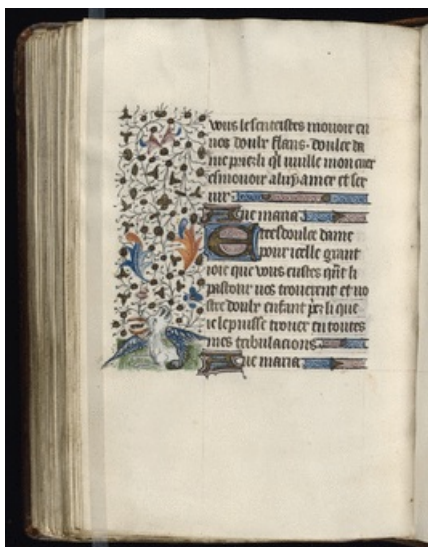 vous le sentestes mouvoir en
vos doulx flans. doulce da
me priez li ql vuille mon cuer
esmouvoir a luy amer et ser
uir
Aue maria
E tresdoulce dame
pour icelle grant
ioie que vous eustes qñt li
pastour nos trouerent et no
stre doulx enfant p̃ez li que
ie le puisse trouer en toutes
mes tribulacions.
Aue maria